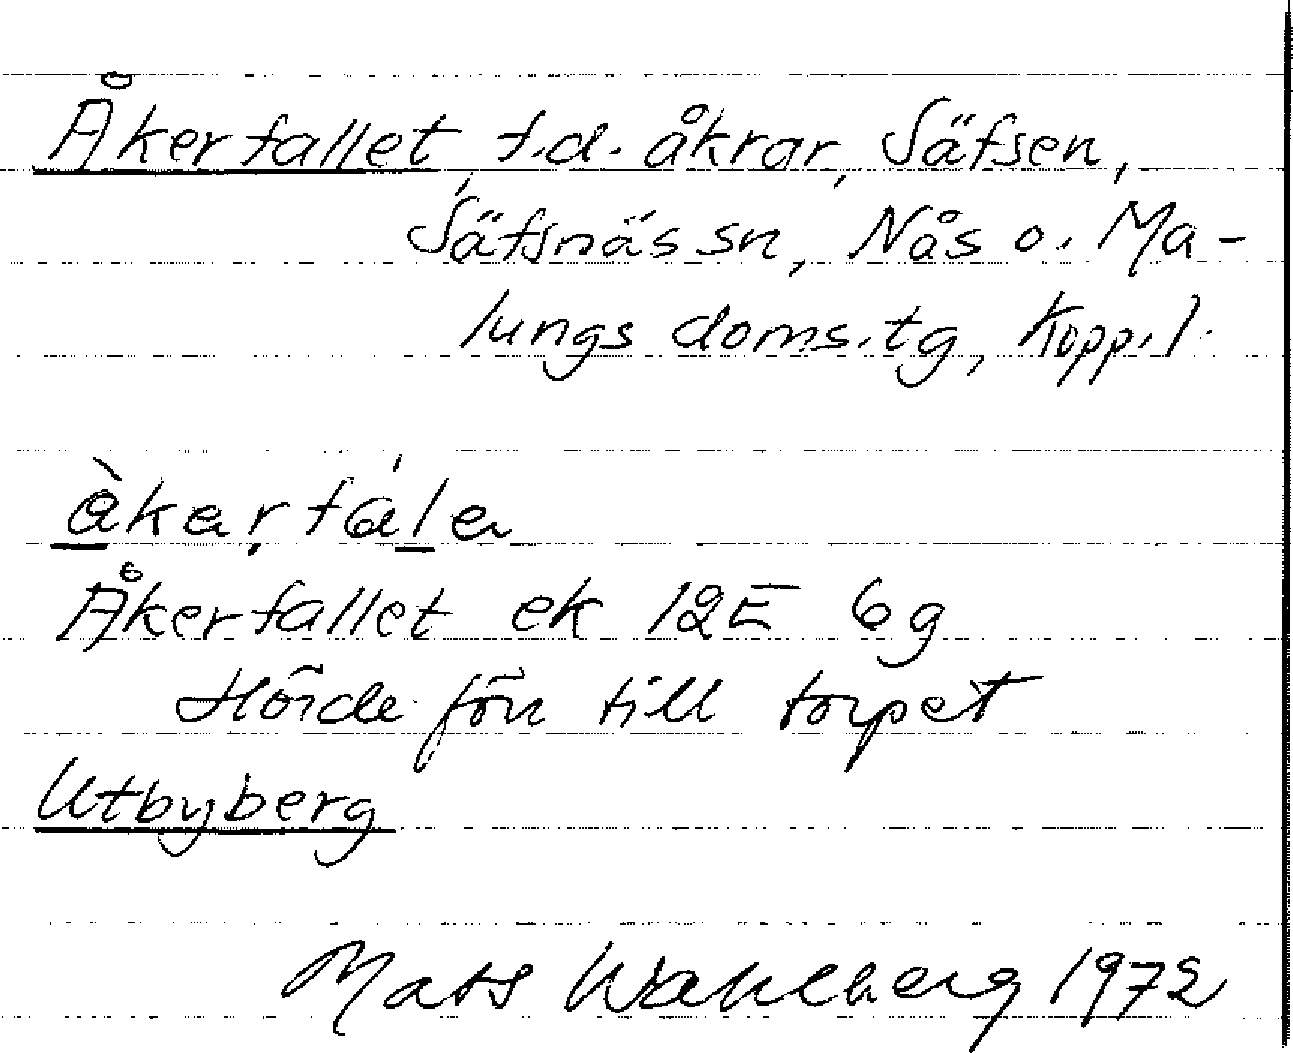 Åkerfallet f.d. åkrar, Säfsen,
Säfsnäs sn, Nås o. Ma-
lungs doms.tg, Kopp.l.
åkaṛfála
Åkerfallet ek 12E 6g
Hörde förr till torpet
Utbyberg
Mats Wahlberg 1972